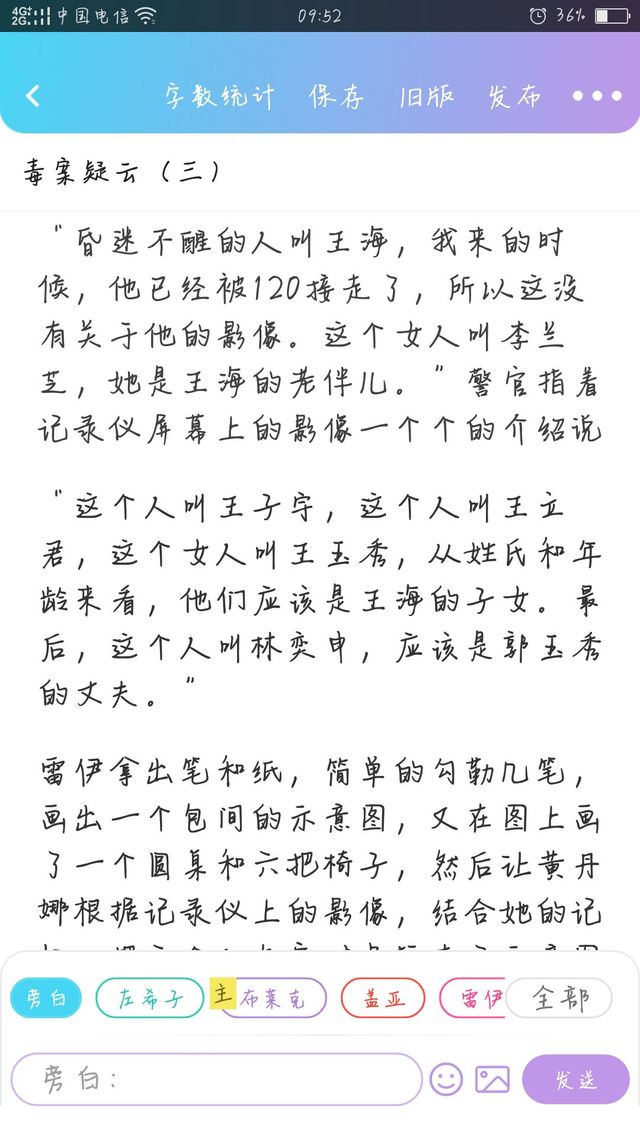 4G+ 2G 中国电信 09:52 36%
字数统计 保存 旧版 发布
毒案疑云（三）
“昏迷不醒的人叫王海，我来的时
候，他已经被120接走了，所以这没
有关于他的影像。这个女人叫李兰
芝，她是王海的老伴儿。”警官指着
记录仪屏幕上的影像一个个的介绍说
“这个人叫王子宇，这个人叫王立
君，这个女人叫王玉秀，从姓氏和年
龄来看，他们应该是王海的子女。最
后，这个人叫林奕申，应该是郭玉秀
的丈夫。”
雷伊拿出笔和纸，简单的勾勒几笔，
画出一个包间的示意图，又在图上画
了一个圆桌和六把椅子，然后让黄丹
娜根据记录仪上的影像，结合她的记
旁白 左希子 主 布莱克 盖亚 雷伊 全部
旁白： 发送